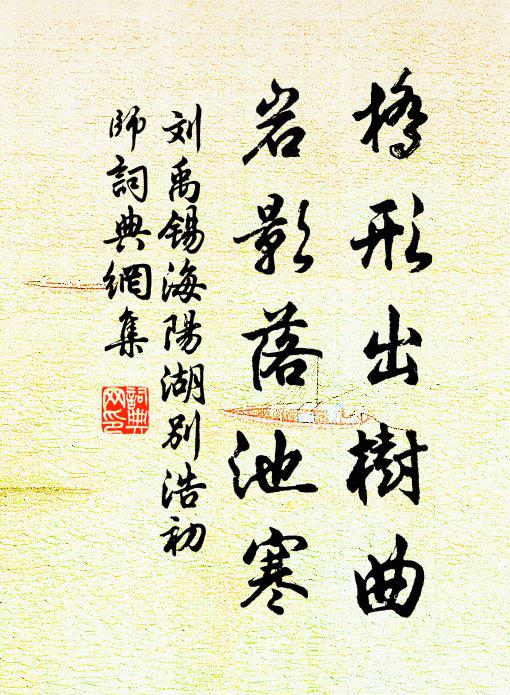 橋形出樹曲
岩影落池寒
刘禹锡海陽湖別浩初
師詞典網集
詞典
网印